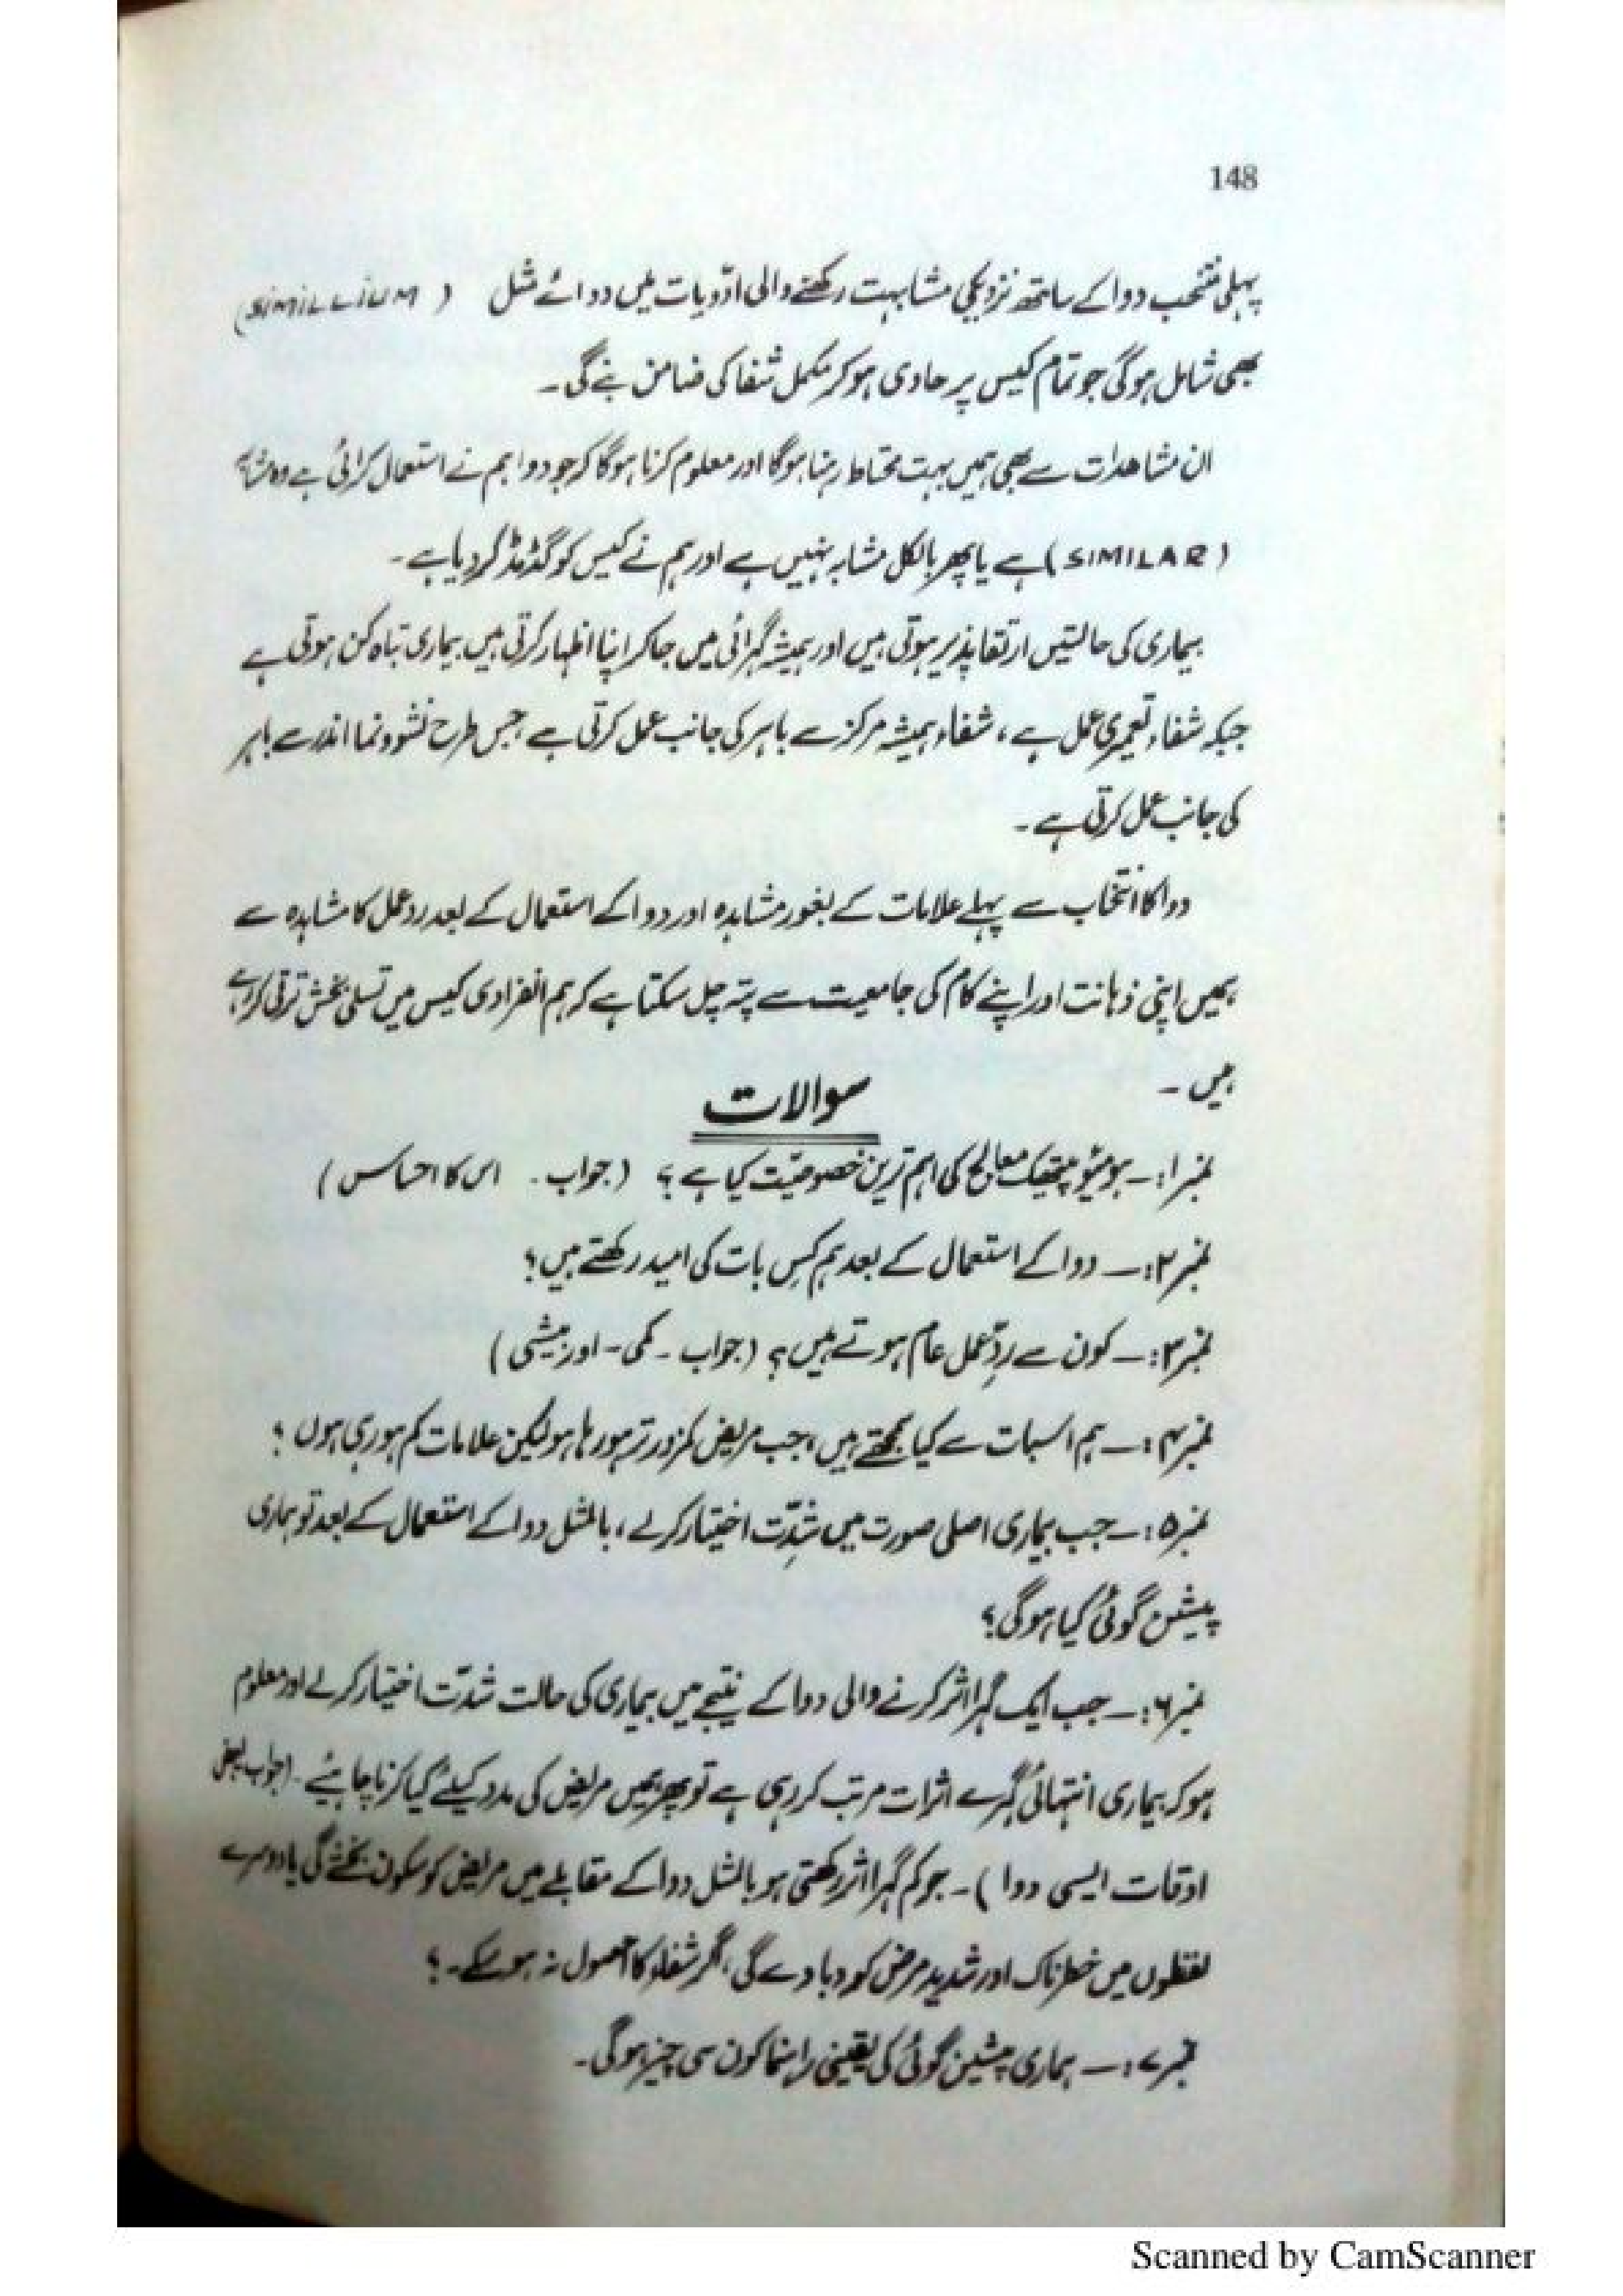 148
پہلی منتخب دوا کے ساتھ نزدیکی مشابہت رکھنے والی ادویات میں دوائے مثل (SIMILLIUM)
بھی شامل ہوگی جو تمام کیس پر حاوی ہوکر مکمل شفا کی ضامن بنے گی۔
ان مشاھدات سے بھی ہمیں بہت محتاط رہنا ہوگا اور معلوم کرنا ہوگا کہ جو دوا ہم نے استعمال کرائی ہے وہ مشابہ
(SIMILAR) ہے یا پھر بالکل مشابہ نہیں ہے اور ہم نے کیس کو گڈمڈ کر دیا ہے۔
بیماری کی حالتیں ارتقا پذیر ہوتی ہیں اور ہمیشہ گہرائی میں جاکر اپنا اظہار کرتی ہیں بیماری تباہ کن ہوتی ہے
جبکہ شفاء تعمیری عمل ہے، شفاء ہمیشہ مرکز سے باہر کی جانب عمل کرتی ہے جس طرح نشوونما اندر سے باہر
کی جانب عمل کرتی ہے۔
دوا کا انتخاب سے پہلے علامات کے بغور مشاہدہ اور دوا کے استعمال کے بعد ردعمل کا مشاہدہ سے
ہمیں اپنی ذہانت اور اپنے کام کی جامعیت سے پتہ چل سکتا ہے کہ ہم انفرادی کیس میں تسلی بخش ترقی کر رہے
ہیں۔
سوالات
نمبر۱:۔ ہومیوپیتھیک معالج کی اہم ترین خصوصیّت کیا ہے؟ (جواب۔ اس کا احساس)
نمبر۲:۔ دوا کے استعمال کے بعد ہم کِس بات کی امید رکھتے ہیں؟
نمبر۳:۔ کون سے ردِّعمل عام ہوتے ہیں؟ (جواب۔ کمی۔ اور بیشی)
نمبر۴:۔ ہم اسبات سے کیا سمجھتے ہیں، جب مریض کمزور تر ہو رہا ہو لیکن علامات کم ہو رہی ہوں؟
نمبر۵:۔ جب بیماری اصلی صورت میں شدِّت اختیار کرلے، بالمثل دوا کے استعمال کے بعد تو ہماری
پیشن گوئی کیا ہوگی؟
نمبر۶:۔ جب ایک گہرا اثر کرنے والی دوا کے نتیجے میں بیماری کی حالت شدّت اختیار کرلے اور معلوم
ہو کہ بیماری انتہائی گہرے اثرات مرتب کر رہی ہے تو پھر ہمیں مریض کی مدد کیلئے کیا کرنا چاہیئے۔ (جواب بعض
اوقات ایسی دوا)۔ جو کم گہرا اثر رکھتی ہو بالمثل دوا کے مقابلے میں مریض کو سکون بخشے گی یا دوسرے
لفظوں میں خطرناک اور شدید مرض کو دبا دے گی، اگر شفاء کا حصول نہ ہو سکے۔؟
نمبر۷:۔ ہماری پیشین گوئی کی یقینی راہنما کون سی چیز ہوگی۔
Scanned by CamScanner